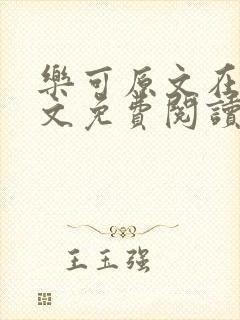 樂可原文在
文免費閱讀
王玉强